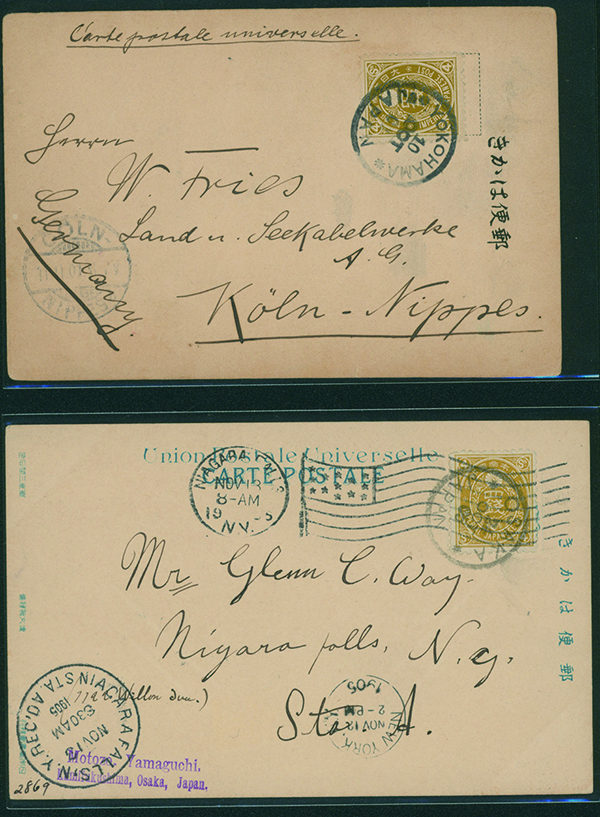 Carte postale universelle.
YOKOHAMA
JAPAN
10
OCT
きかは便郵
Herrn
W. Fries
Land u. Seekabelwerke
A. G.
Köln - Nippes.
Germany.
CÖLN-
NIPP
Union Postale Universelle
CARTE POSTALE
NIAGARA FALLS
NOV 13
8-AM
N.Y.
OSAKA
JAPAN
きかは便郵
Mr. Glenn C. Way.
Niyara falls, N.y.
Sta A.
NEW YORK
NOV 12
2-PM
1905
NIAGARA FALLS N.Y. REC'D.
STA A
NOV 13
830AM
1905
Motozo Yamaguchi.
Osaka, Japan.
2869